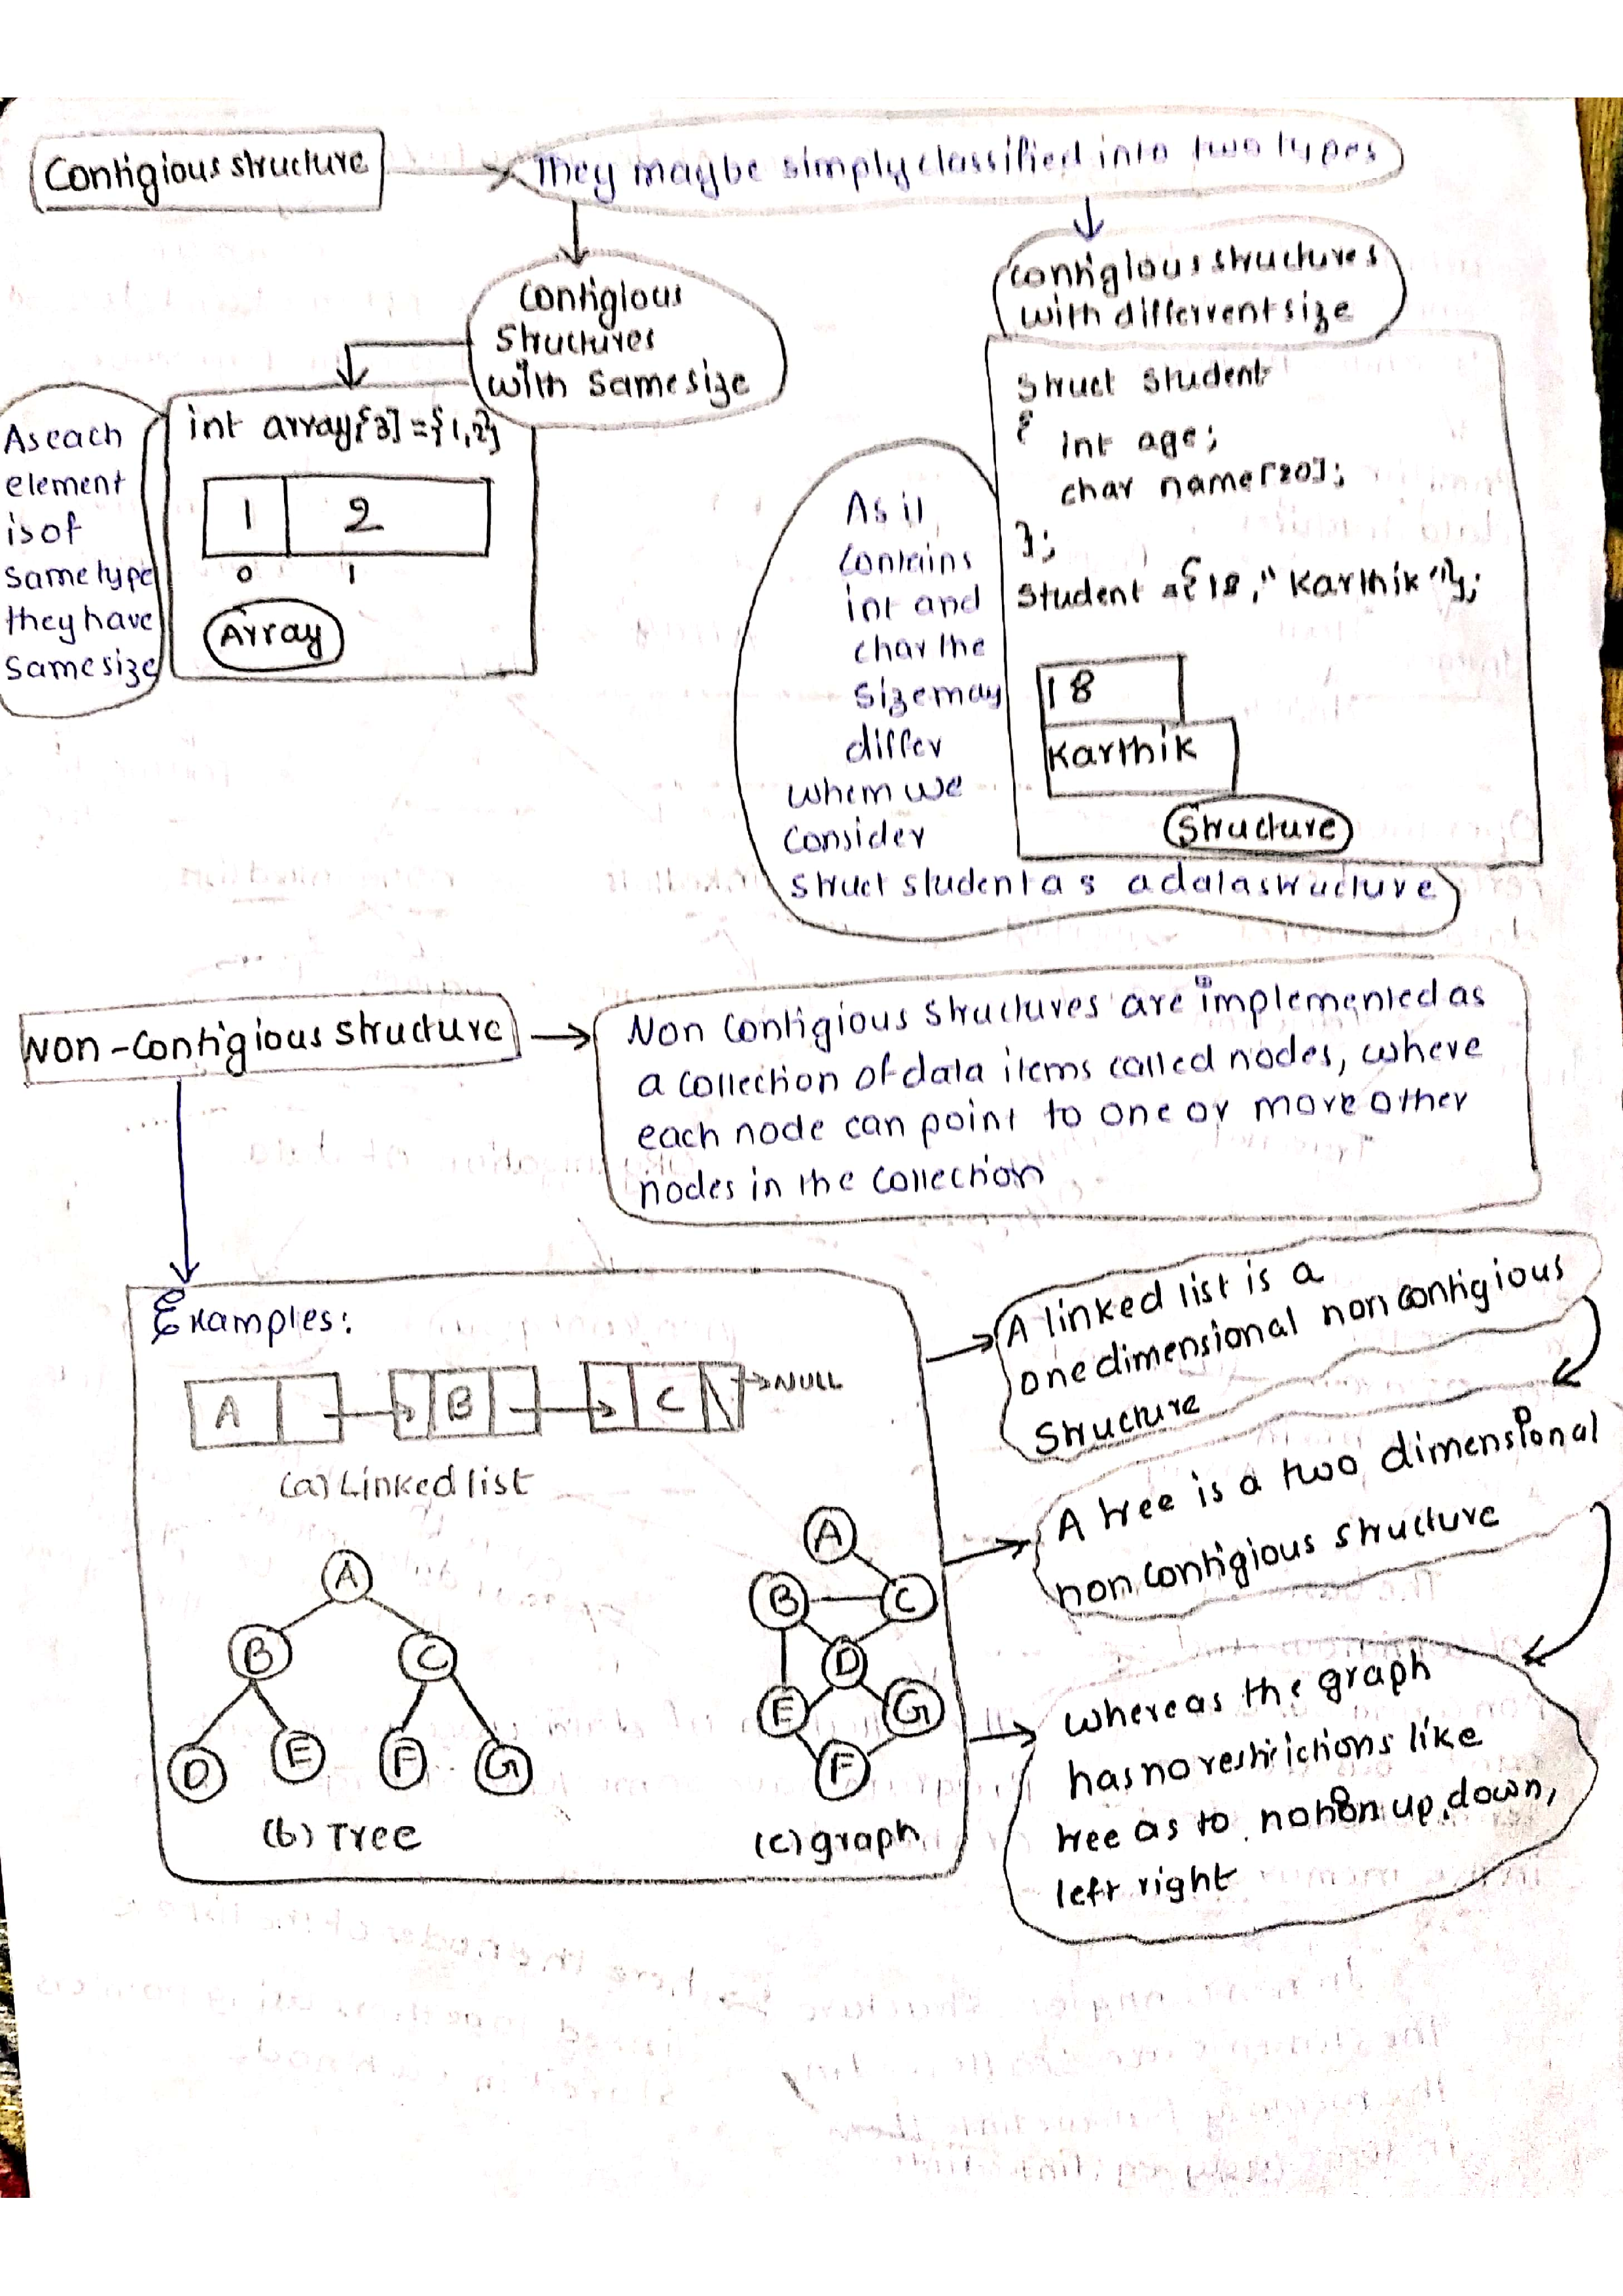 Contigious structure
They maybe simply classified into two types
Contigious
Structures
with same size
contigious structures
with differrent size
As each
element
is of
same type
they have
same size
int array[3] = {1,2}
1 2
0 1
Array
struct student
{
int age;
char name[20];
};
student = {18, "Karthik"};
18
Karthik
Structure
As it
contains
int and
char the
size may
differ
whem we
consider
struct student as a data structure
NON-Contigious structure
Non contigious structures are implemented as
a collection of data items called nodes, where
each node can point to one or more other
nodes in the collection
Examples:
A B C NULL
(a) Linked list
A
B C
D E F G
(b) Tree
A
B C
D
E G
F
(c) graph
A linked list is a
one dimensional non contigious
structure
A tree is a two dimensional
non contigious structure
whereas the graph
has no restrictions like
tree as to notion up, down,
left right